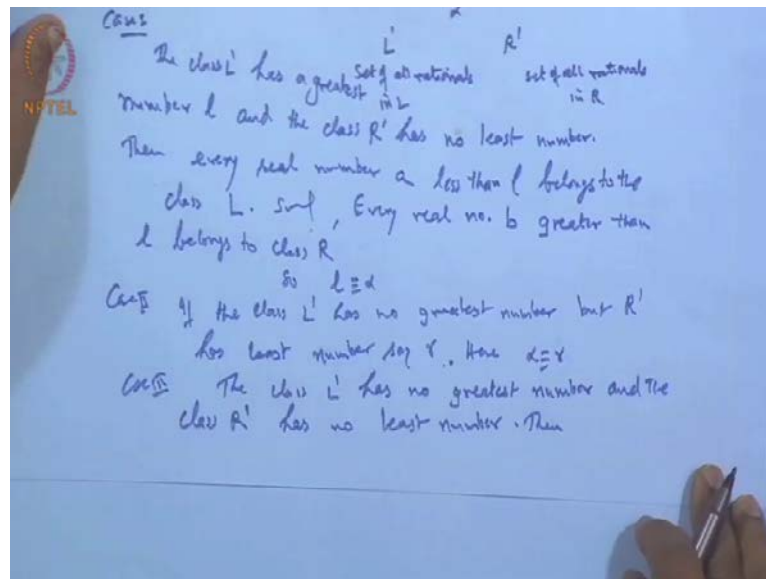 Case I
α
L' R'
The class L' has a greatest set of all rationals set of all rationals
in L in R
number l and the class R' has no least number.
Then every real number a less than l belongs to the
class L. , Every real no. b greater than
l belongs to class R
So l ≡ α
Case II If the class L' has no greatest number but R'
has least number say r. Here α ≡ r
Case III The class L' has no greatest number and the
class R' has no least number. Then
NPTEL